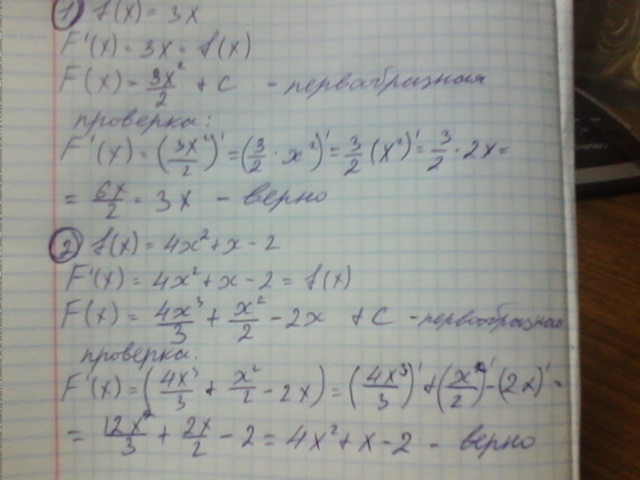 1) f(x) = 3x
F'(x) = 3x = f(x)
F(x) = 3x²/2 + C - первообразная
проверка:
F'(x) = (3x²/2)' = (3/2 · x²)' = 3/2 (x²)' = 3/2 · 2x =
= 6x/2 = 3x - верно
2) f(x) = 4x² + x - 2
F'(x) = 4x² + x - 2 = f(x)
F(x) = 4x³/3 + x²/2 - 2x + C - первообразная
проверка:
F'(x) = (4x³/3 + x²/2 - 2x) = (4x³/3)' + (x²/2)' - (2x)' =
= 12x²/3 + 2x/2 - 2 = 4x² + x - 2 - верно